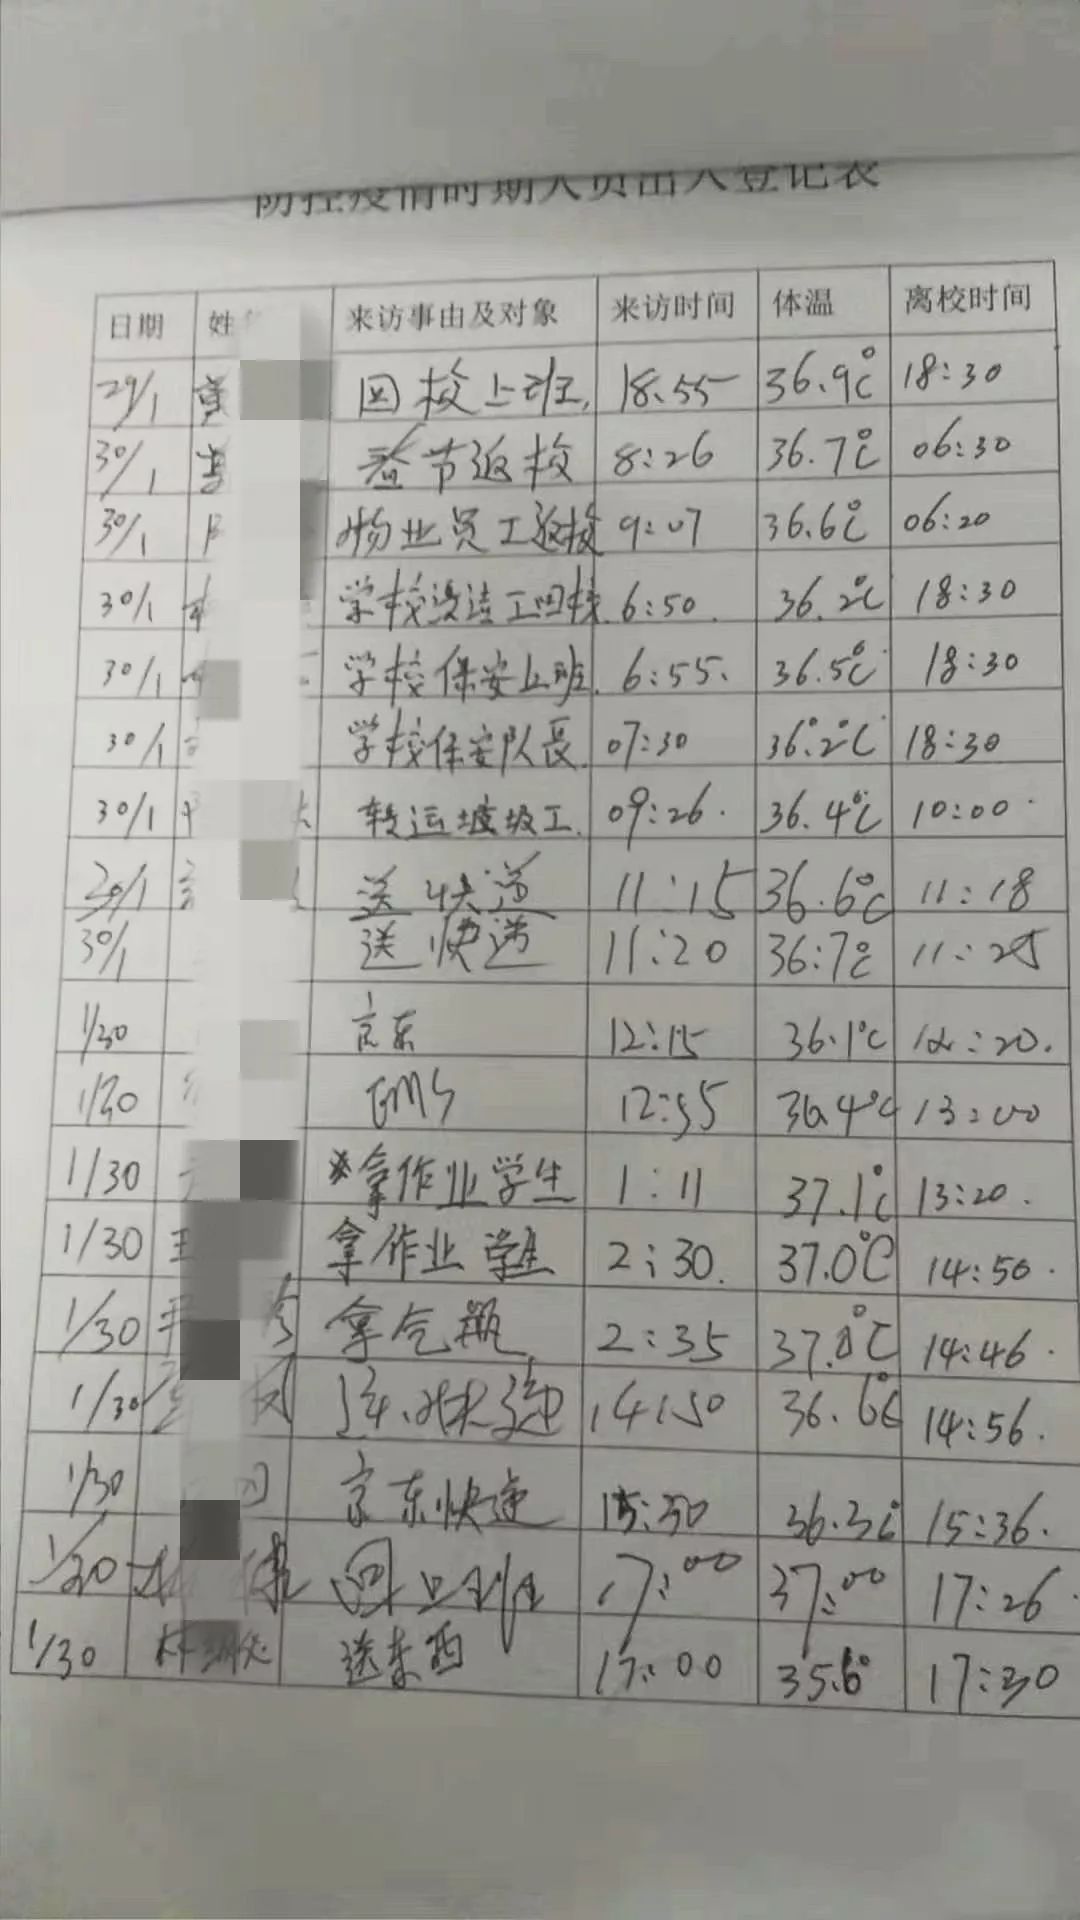 防控疫情时期人员出入登记表
日期 姓 来访事由及对象 来访时间 体温 离校时间
29/1 回校上班, 18.55 36.9℃ 18:30
30/1 春节返校 8:26 36.7℃ 06:30
30/1 物业员工返校 9:07 36.6℃ 06:20
30/1 学校 工回校 6:50. 36.2℃ 18:30
30/1 学校保安上班. 6:55. 36.5℃ 18:30
30/1 学校保安队长. 07:30 36.2℃ 18:30
30/1 转运垃圾工. 09:26. 36.4℃ 10:00
30/1 送快递 11:15 36.6℃ 11:18
30/1 送快递 11:20 36:7℃ 11:25
1/30 京东 12:15 36.1℃ 12:20.
1/30 EMS 12:55 36.4℃ 13:00
1/30 拿作业学生 1:11 37.1℃ 13:20.
1/30 王 拿作业学生 2:30. 37.0℃ 14:50.
1/30 拿气瓶 2:35 37.0℃ 14:46.
1/30 快递 14:50 36.6℃ 14:56.
1/30 京东快递 15:30 36.3℃ 15:36.
1/30 林 17:00 37:00 17:26
1/30 林 送东西 17:00 35.6° 17:30